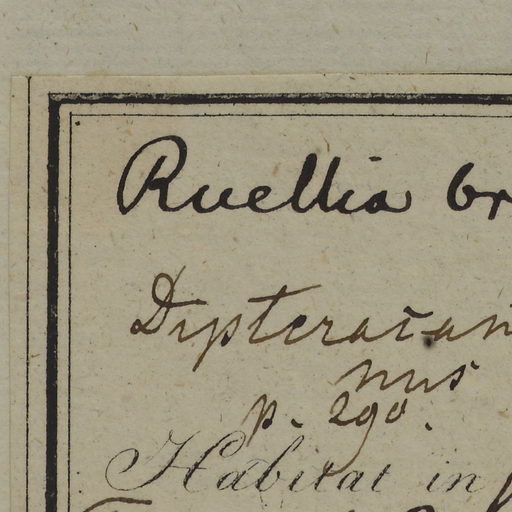 Ruellia br
Dipteracan
nus
p. 290.
Habitat in